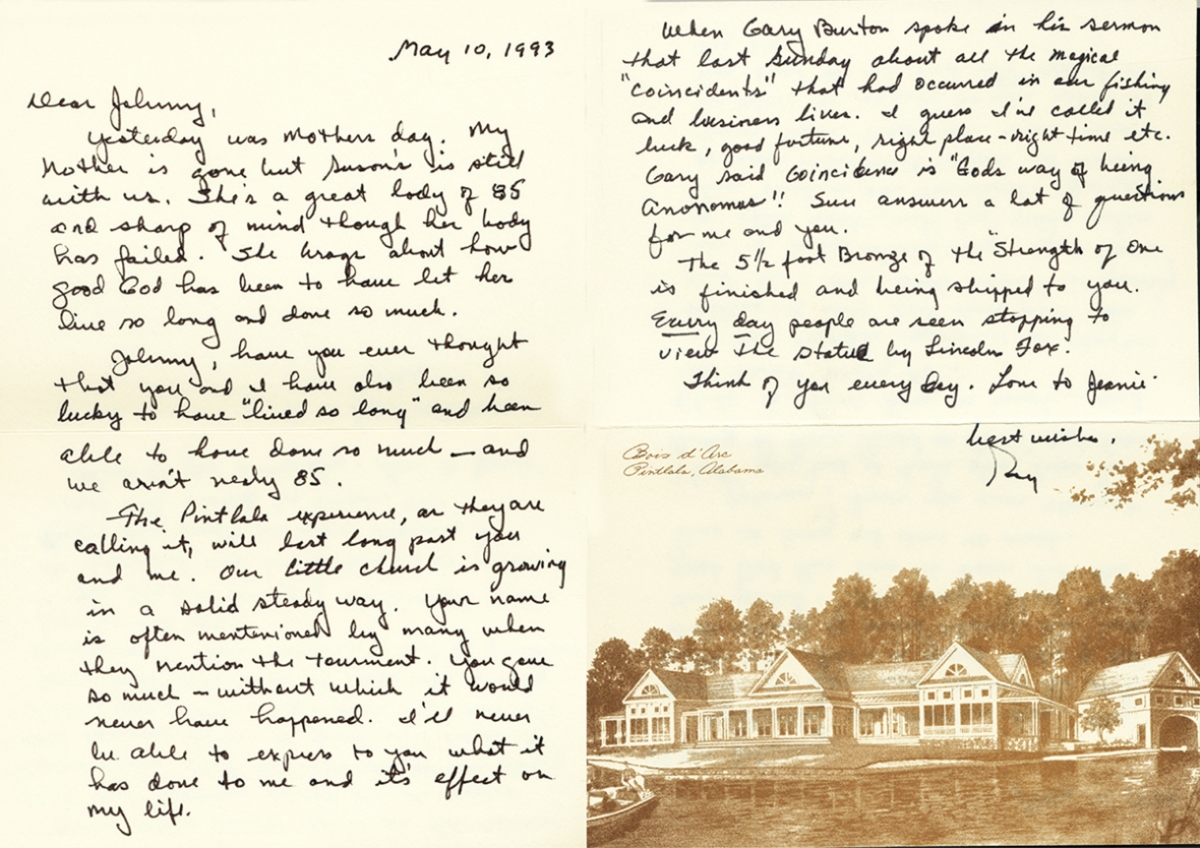 May 10, 1993
Dear Johnny,
Yesterday was Mothers day. My
Mother is gone but Susan's is still
with us. She's a great lady of 85
and sharp of mind though her body
has failed. She brags about how
good God has been to have let her
live so long and done so much.
Johnny, have you ever thought
that you and I have also been so
lucky to have "lived so long" and been
able to have done so much — and
we aren't nearly 85.
The Pintlala experience, as they are
calling it, will last long past you
and me. Our little church is growing
in a solid steady way. Your name
is often mentenioned by many when
they mention the tourment. You gave
so much — without which it would
never have happened. I'll never
be able to express to you what it
has done to me and it's effect on
my life.
When Gary Burton spoke in his sermon
that last Sunday about all the magical
"Coincidents" that had occurred in our fishing
and business lives. I guess I've called it
luck, good fortune, right place-right time etc.
Gary said Coincidence is "Gods way of being
anonomas!! Sure answers a lot of questions
for me and you.
The 5½ foot Bronze of the "Strength of One
is finished and being shipped to you.
Every day people are seen stopping to
view the statue by Lincoln Fox.
Think of you every day. Love to Jeanie.
best wishes,
Ray
Bois d'Arc
Pintlala, Alabama